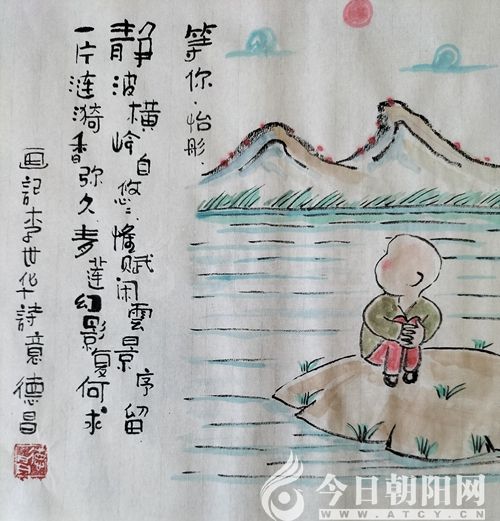 等你·怡彤·
静波横岭自悠悠惟赋闲雲景序留
一片涟漪香弥久青莲幻影复何求
画记李世华詩意德昌
今日朝阳网
WWW.ATCY.CN